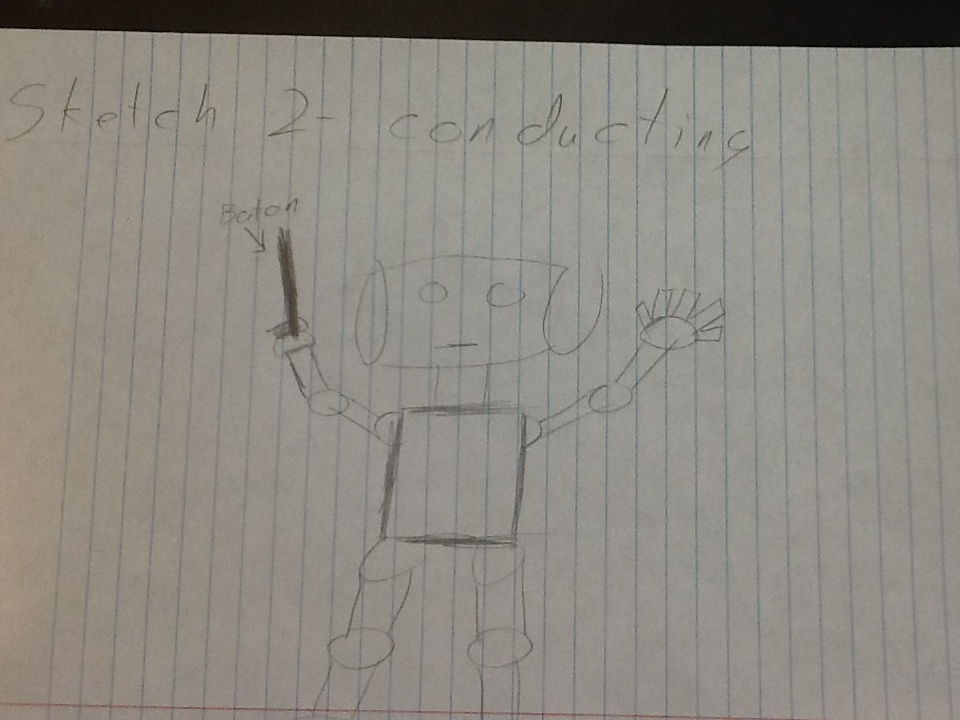 Sketch 2- conducting
Baton